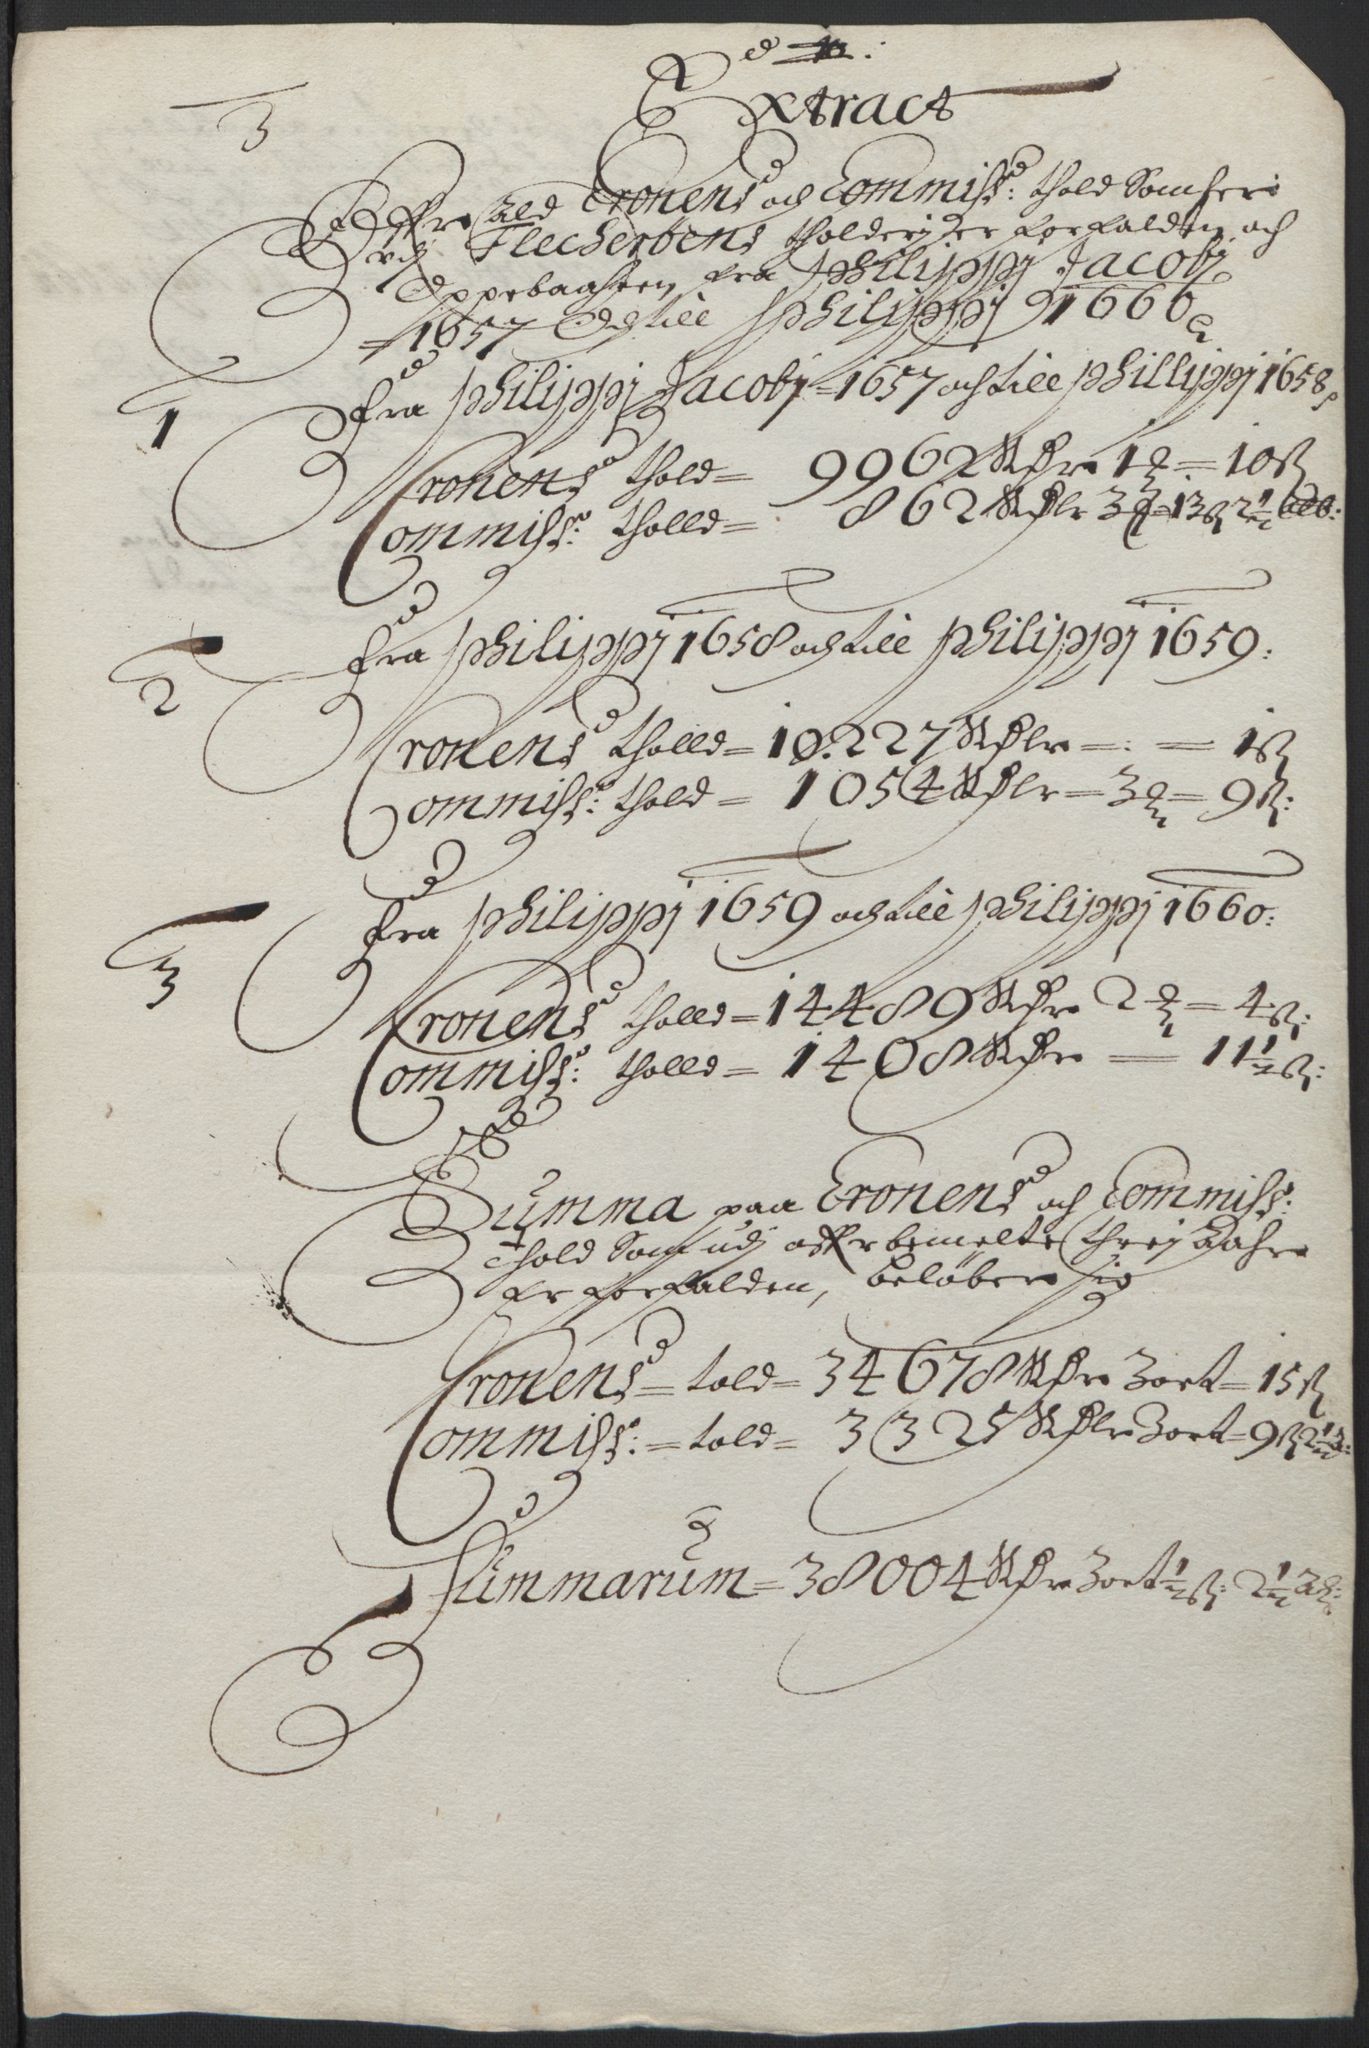 Extract
3
Offr ald Cronens och Commiss: thold Som her
vdj Flecherøens tholderj er forfalden, och
Oppebaaren fra Philippj Jacobj
1657 Och till Philippj 1660
1
Fra Philippj Jacobj = 1657 och till Phillippj 1658
Cronens thold = 9962 Rdr 1 = 10 ß
Commiss: tholld = 862 Rdlr 3 = 13 ß 2 1/2 alb:
2
Fra Philippj 1658 och till Philippj 1659:
Cronens tholld = 10.227 Rdlr = : = 1 ß
Commiss: thold = 1054 Rdlr = 3 = 9 ß:
3
Fra Philippj 1659 och till Philippj 1660:
Cronens tholld = 14489 Rdr 2 = 4 ß:
Commiss: tholld = 1408 Rdr = 11 1/2 ß:
Summa paa Cronens och Commiss:
thold Som udj offrbemelte threj Aahr
er forfalden, beløber sig
Cronens = told = 34678 Rdr 3 ort = 15 ß
Commiss: = told = 3325 Rdlr 3 ort = 9 ß 2 1/2
Summarum = 38004 Rdr 3 ort 1/2 ß: 2 1/2